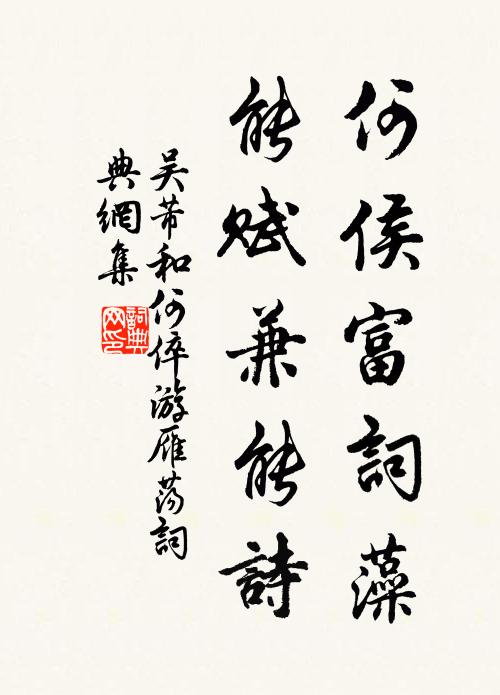 何侯富詞藻
能賦兼能詩
吴芾和何倅游雁蕩詞
典網集
詞典网印